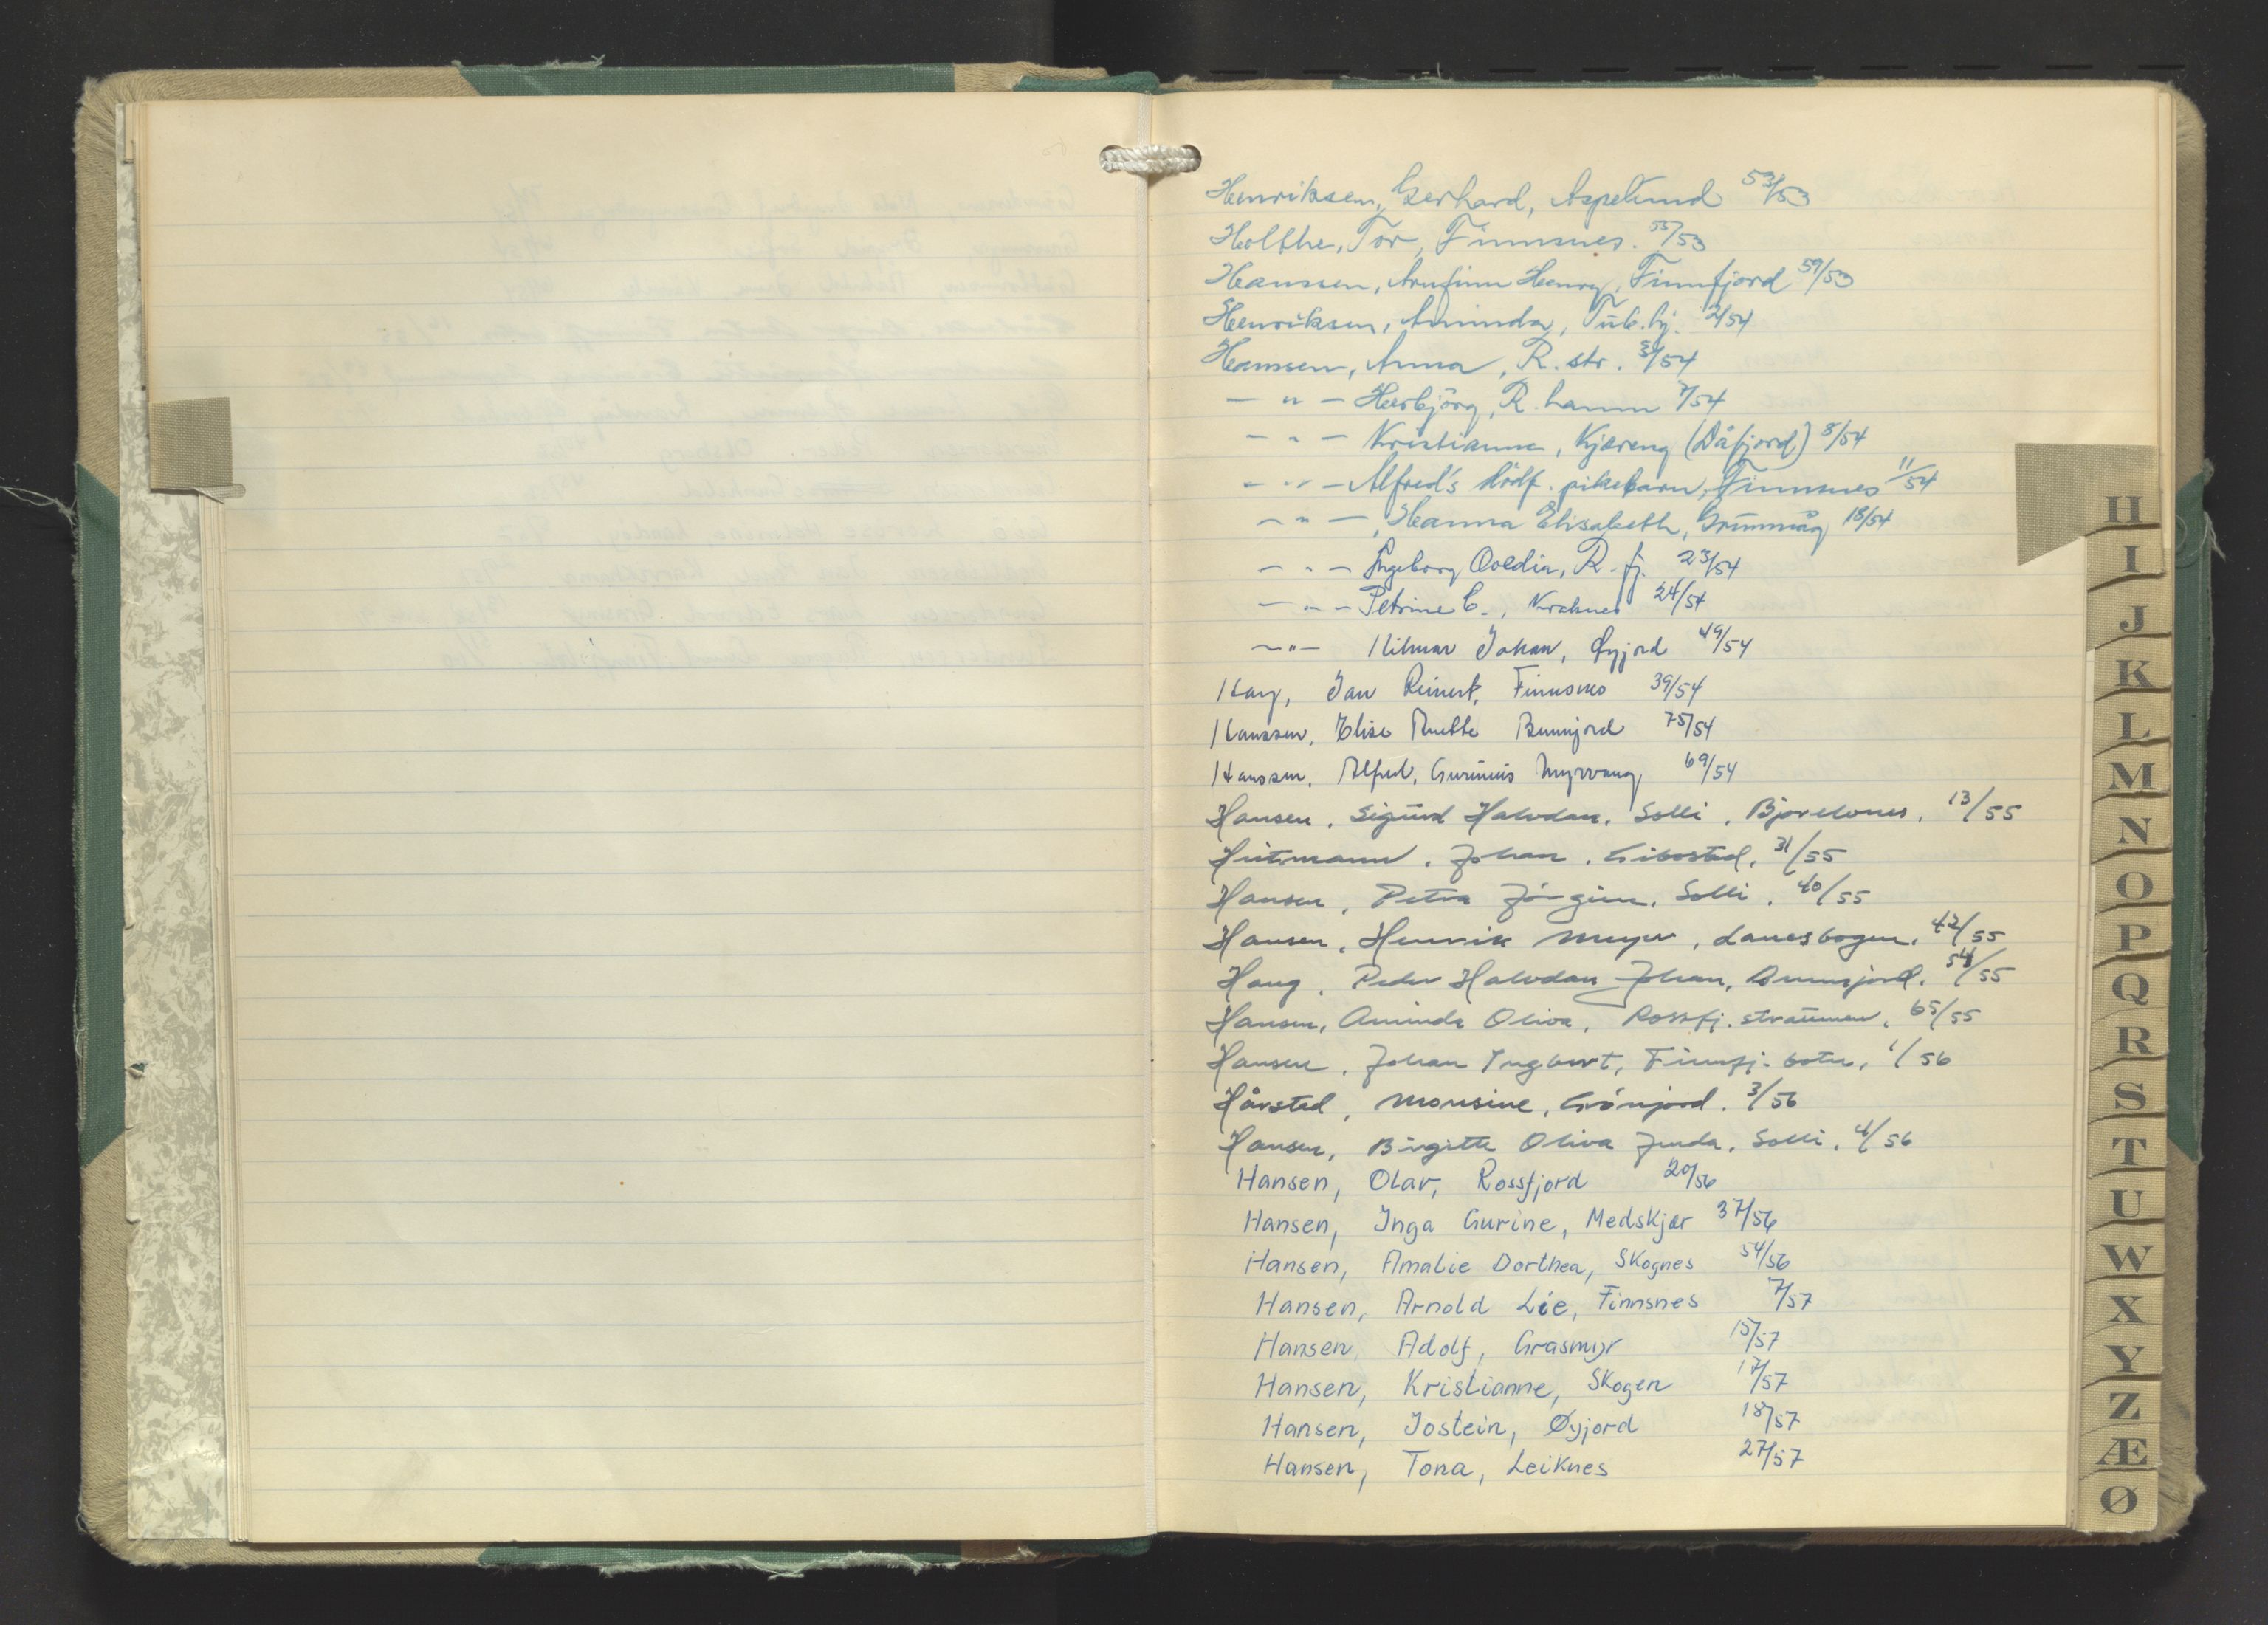 Henriksen, Gerhard, Aspelund 53/53
Holthe, Tor, Finnsnes. 55/53
Hanssen, Arnfinn Henry, Finnfjord 59/53
Henriksen, Aminda, 2/54
Hanssen, Anna, R.str. 3/54
— " — Herbjörg, R.hamn 7/54
— " — Kristianna, Kjæreng (Dåfjord) 8/54
— " — Alfred's dödf. pikebarn, Finnsnes 11/54
— " —, Hanna Elisabeth, Grunnvåg 18/54
— " — Ingeborg R.fj. 23/54
— " — Petrine C., 24/54
— " — Hilmar Johan, Øyjord 49/54
Haug, Jan Reinert, Finnsnes 39/54
Hanssen, Elise 75/54
Hanssen, Alfred, Myrvang 69/54
Hansen, Sigurd Halvdan, Solli, Bjorelvnes, 13/55
Johan, Gibostad, 31/55
Hansen, Petra Jörgine, Solli, 40/55
Hansen, Henrik Meyer, Lanesbogen, 42/55
Haug, Peder Halvdan Johan, 54/55
Hansen, Aminda Oliva, Rossfj.straumen, 65/55
Hansen, Johan Ingbert, Finnfj.botn, 1/56
Hårstad, Monsine, Grönjord. 3/56
Hansen, Birgitte Oliva Solli, 4/56
Hansen, Olav, Rossfjord 20/56
Hansen, Inga Gurine, Medskjær 37/56
Hansen, Amalie Dorthea, Skognes 54/56
Hansen, Arnold Lie, Finnsnes 7/57
Hansen, Adolf, Grasmyr 15/57
Hansen, Kristianne, Skogen 17/57
Hansen, Jostein, Øyjord 18/57
Hansen, Tona, Leiknes 27/57
H
I
J
K
L
M
N
O
P
Q
R
S
T
U
W
X
Y
Z
Æ
Ø